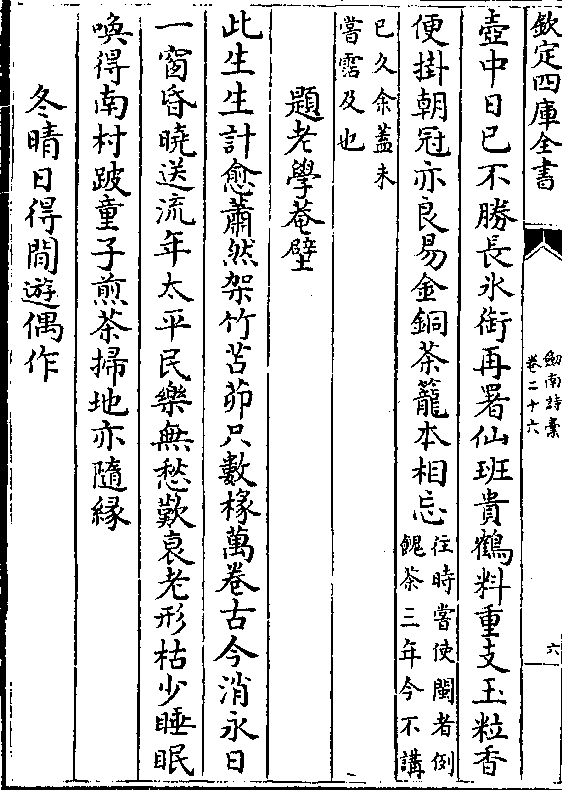 欽定四庫全書
劒南詩稾
卷二十六
六
壺中日已不勝長氷銜再署仙班貴鶴料重支玉粒香
便掛朝冠亦良易金銅茶籠本相忘
往時嘗使閩者例
餽茶三年今不講
已久余蓋未
嘗霑及也
題老學菴壁
此生生計愈蕭然架竹苫茆只數椽萬卷古今消永日
一窗昏曉送流年太平民樂無愁歎衰老形枯少睡眠
喚得南村跛童子煎茶掃地亦隨縁
冬晴日得閒遊偶作